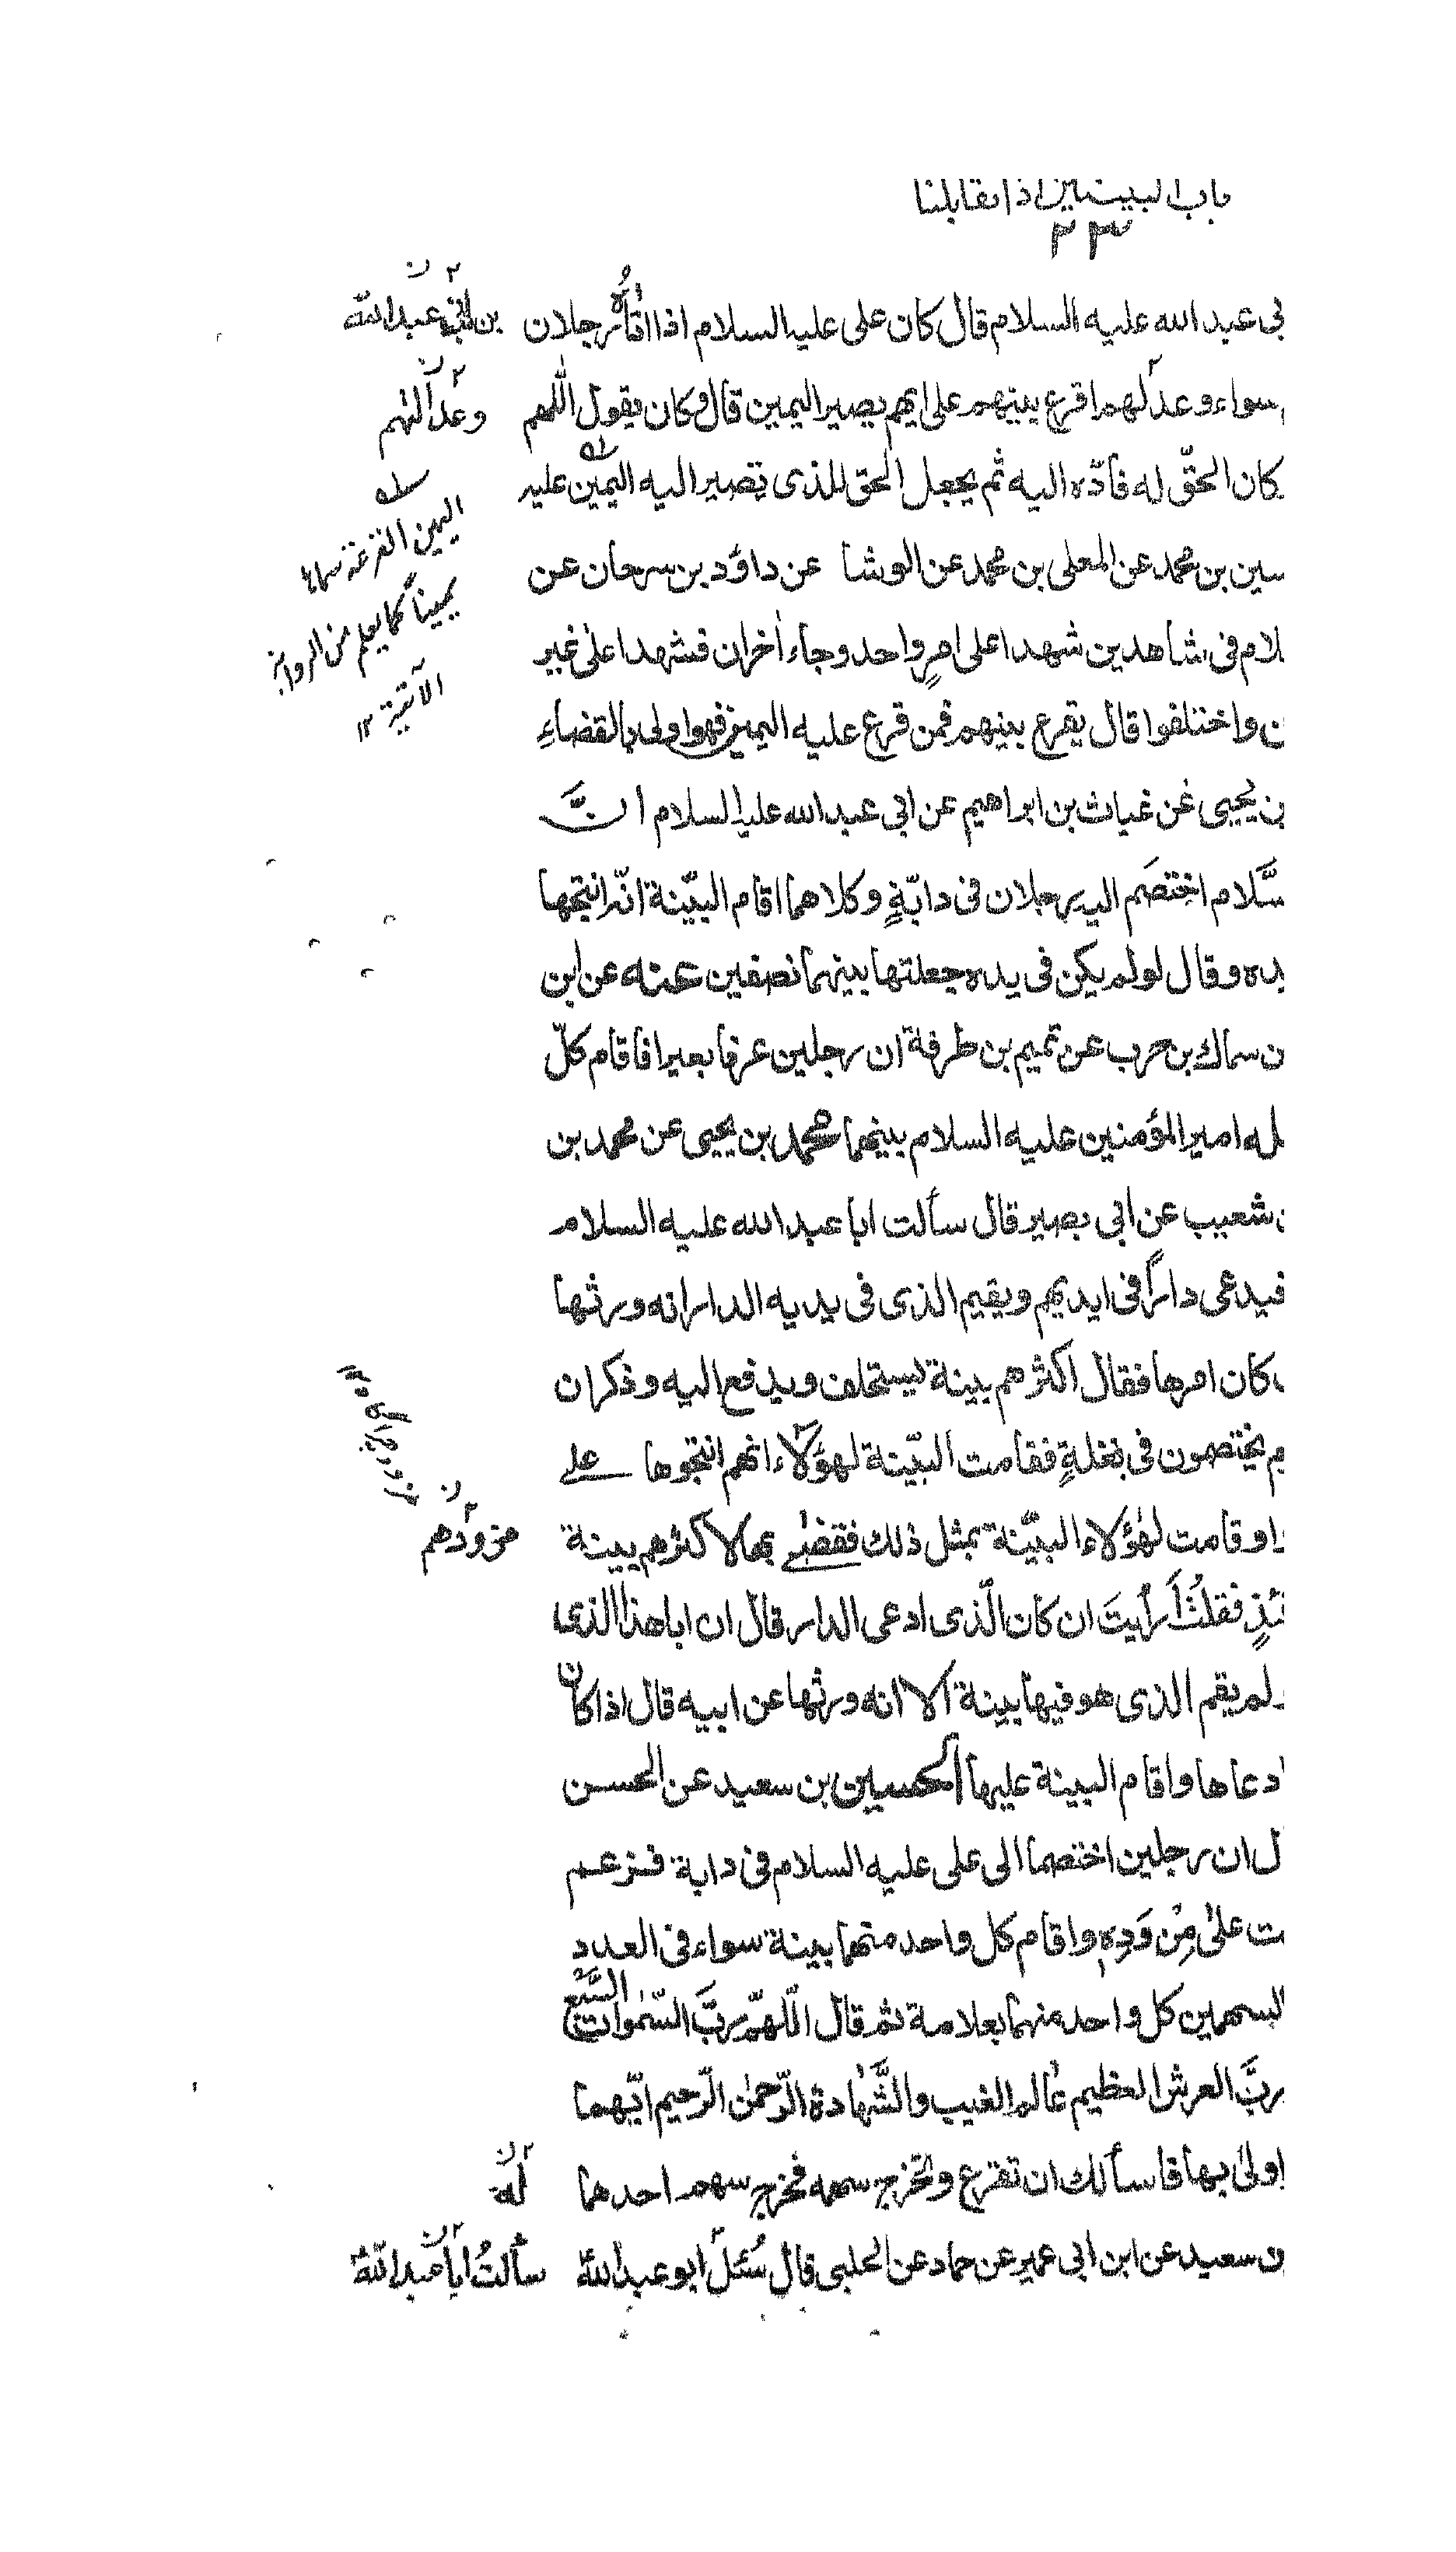 باب البينتين اذا تقابلتا
٢٣
بى عبد الله عليه السلام قال كان على عليه السلام اذا اتاه رجلان
بن ابى عبد الله
سواء وعدلهم اقرع بينهم على ايهم يصير اليمين قال وكان يقول اللهم
وعدالتهم
كان الحقّ له فادّه اليه ثم يجعل الحق للذى تصير اليه اليمين عليه
اليمين القرعة سماها
يمينا كما يعلم من الرواية
الآتية ١٢
سين بن محمد عن المعلى بن محمد عن الوشا عن داؤد بن سرحان عن
لام فى شاهدين شهدا على امرٍ واحد وجاء اٰخران فشهدا علىٰ غير
واختلفوا قال يقرع بينهم فمن قرع عليه اليمين فهو اولى بالقضاءِ
بن يحيى عن غياث بن ابراهيم عن ابى عبد الله عليه السلام انَّ
سَّلام اختصَم اليه رجلان فى دابّةٍ وكلاهما اقام البيّنة انّه انتجها
يده وقال لو لم يكن فى يده جعلتها بينهما نصفين عنه عن ابن
ن سماك بن حرب عن تميم بن طرفة ان رجلين عرفا بعيرا فاقام كلّ
له امير المؤمنين عليه السلام بينهما محمد بن يحيى عن محمد بن
شعيب عن ابى بصير قال سألت ابا عبد الله عليه السلام
فيدعى داراً فى ايديهم ويقيم الذى فى يديه الدار انه ورثها
كان امرها فقال اكثرهم بينة يستحلف ويدفع اليه وذكر ان
م يختصمون فى بغلةٍ فقامت البيّنة لهؤلاء انهم انتجوها على
وا وقامت لهٰؤلاء البيّنة بمثل ذلك فقضىٰ بها لاكثرهم بينة
مزودهم
ئذٍ فقلتُ أرأيتَ ان كان الّذى ادعى الدار قال ان ابا هذا الذى
ولم يقم الذى هو فيها بينة الا انه ورثها عن ابيه قال اذا كان
ادعاها واقام البينة عليها الحسين بن سعيد عن الحسن
ل ان رجلين اختصما الى على عليه السلام فى دابة فزعم
ت علىٰ مِزْوَدِهِ واقام كل واحد منهما بينة سواء فى العدد
السهمين كل واحد منهما بعلامة ثم قال اللّهمّ ربَّ السّمٰوات السَّبْع
ربَّ العرش العظيم عٰالم الغيب والشَّهٰادة الرّحمٰن الرّحيم ايّهما
اولىٰ بها فاسألك ان تقرع وتخرج سهمه فخرج سهم احدهما
له
بن سعيد عن ابن ابى عمير عن حماد عن الحلبى قال سُئل ابو عبد اللهؑ
سألتُ ابا عبد اللهؑ